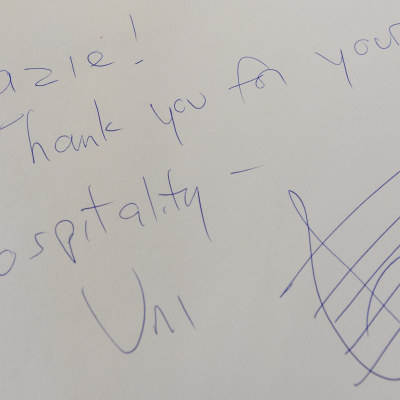 azie!
Thank you for your
ospitality -